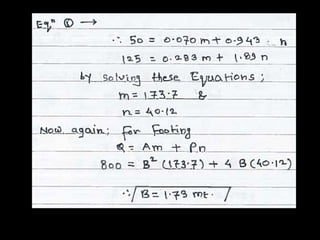 Eqⁿ ① →
∴ 50 = 0.070 m + 0.943 n
125 = 0.283 m + 1.89 n
by solving these Equations;
m = 173.7 &
n = 40.12
Now again; for Footing
Q = Am + Pn
800 = B² (173.7) + 4 B (40.12)
∴ B = 1.73 mt.